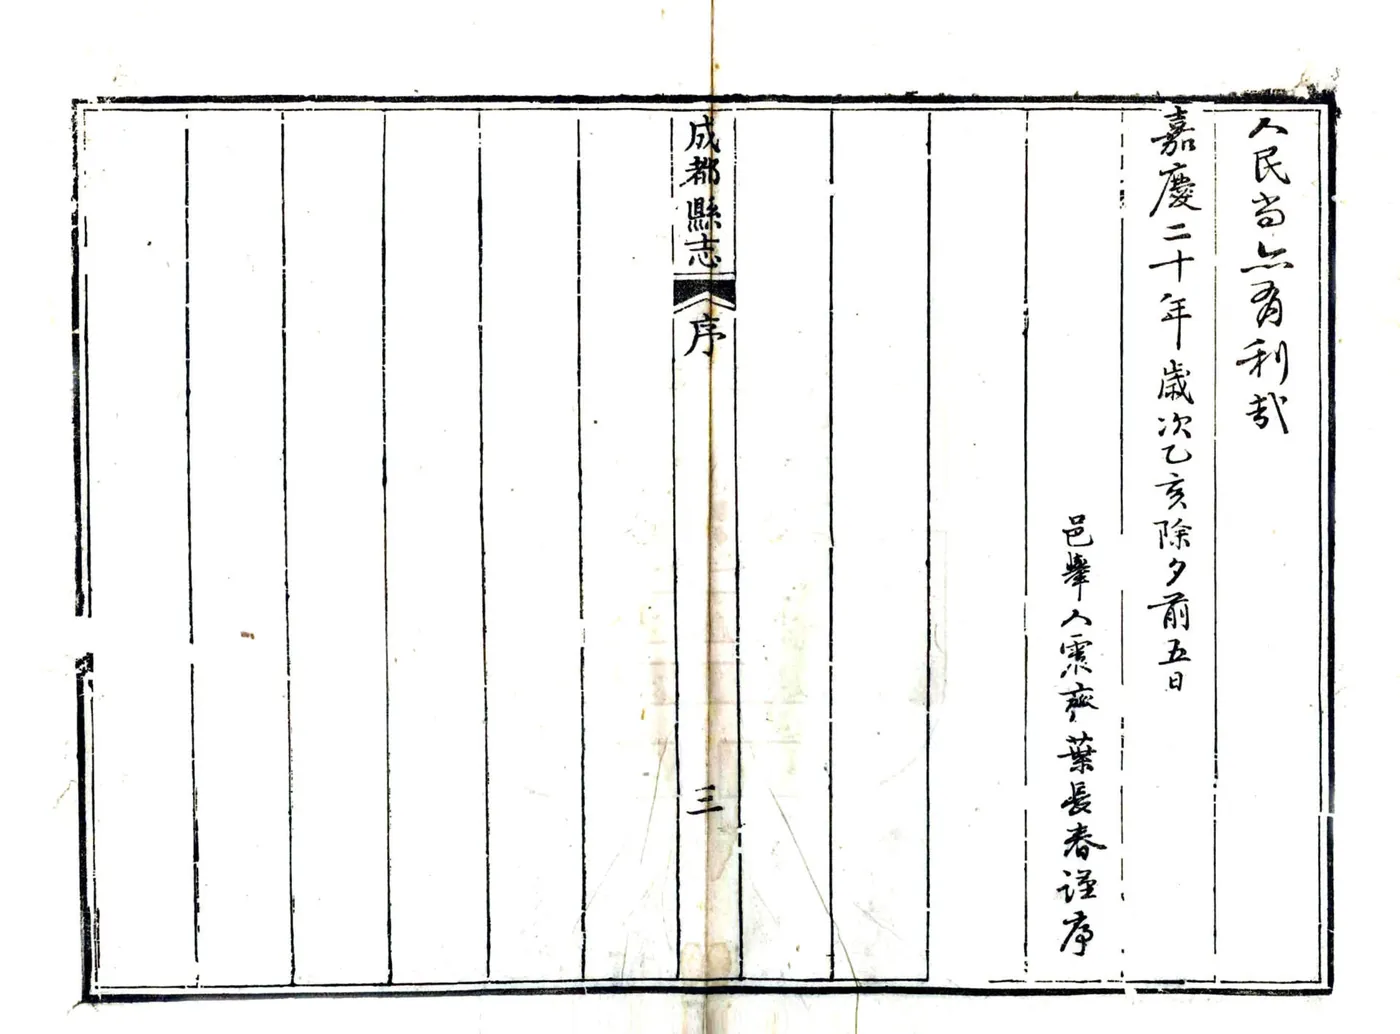 人民尚亦有利哉
嘉慶二十年歲次乙亥除夕前五日
邑舉人震齋葉長春謹序
成都縣志
序
三